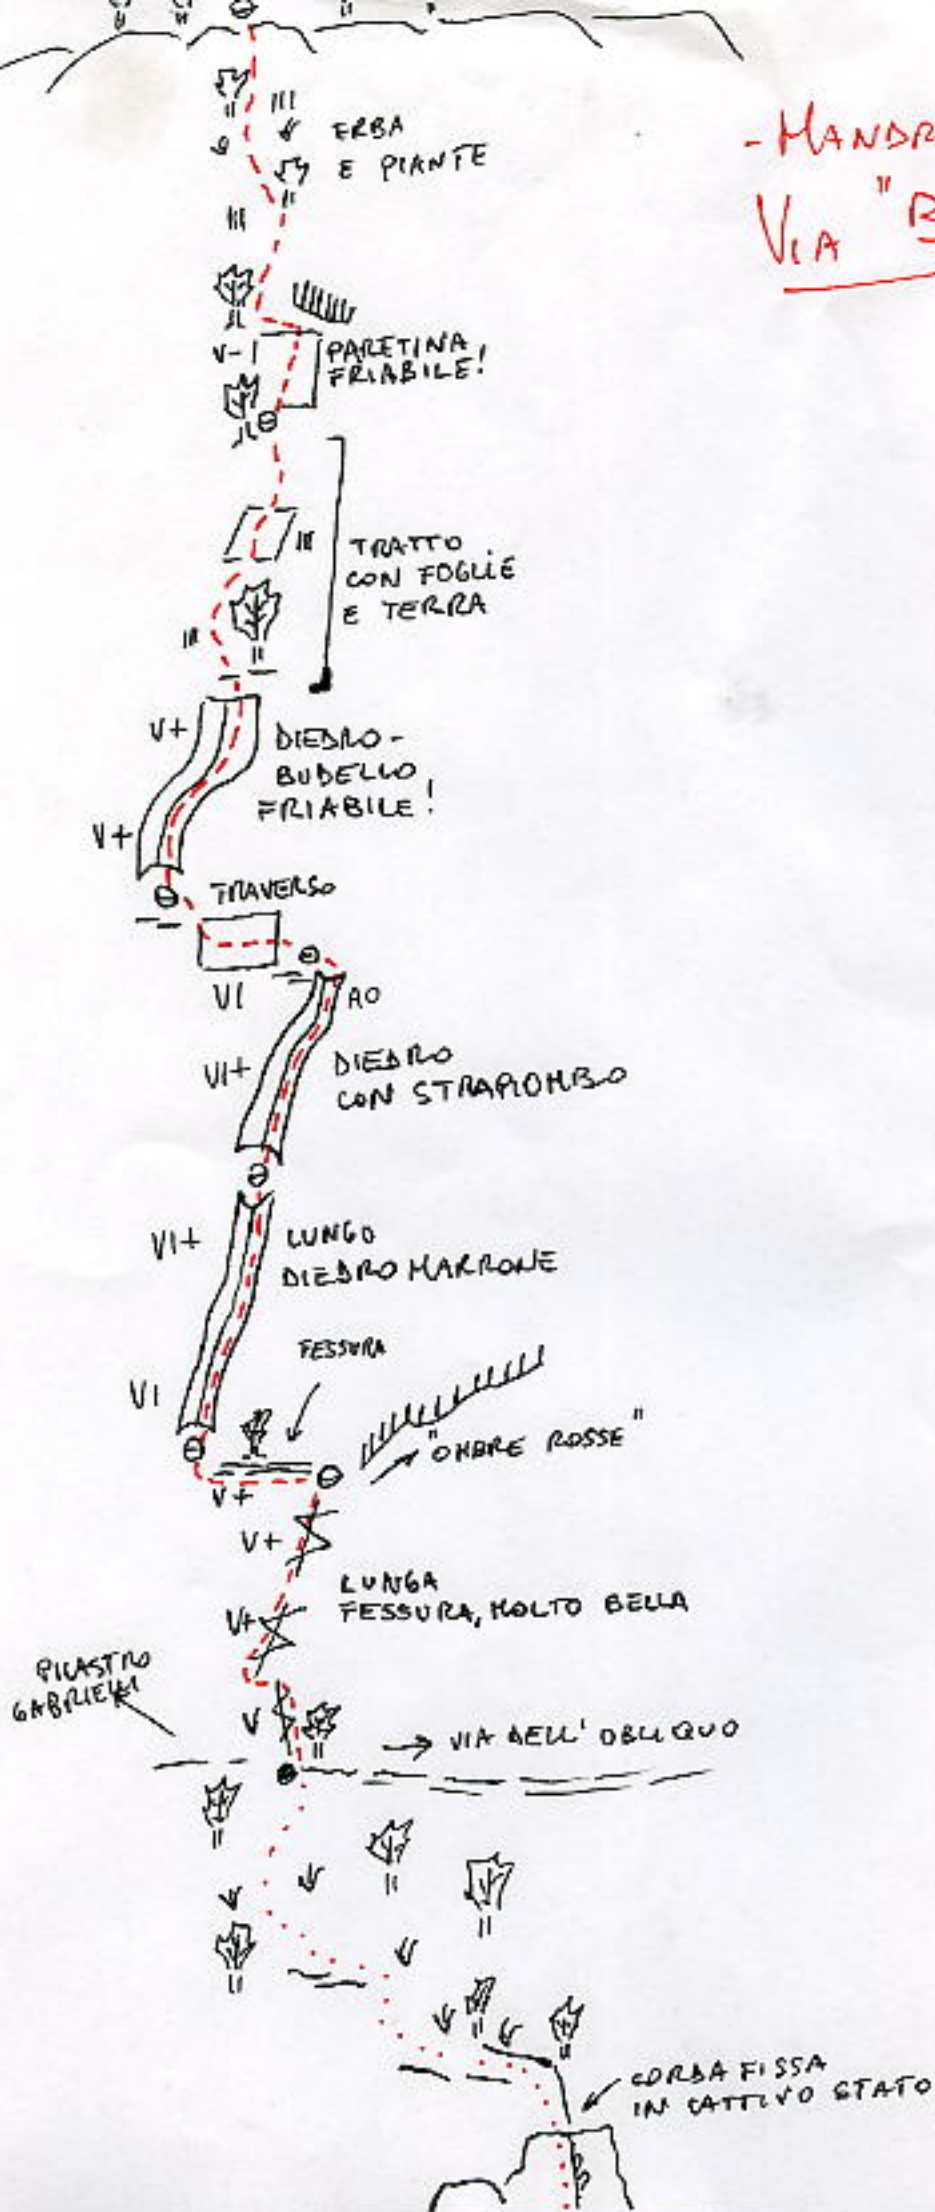 III
ERBA
E PIANTE
III
- MANDR
VIA "B
V-
PARETINA
FRIABILE!
III
TRATTO
CON FOGLIE
E TERRA
III
V+
DIEDRO-
BUDELLO
FRIABILE!
V+
TRAVERSO
VI
A0
VI+
DIEDRO
CON STRAPIOMBO
VI+
LUNGO
DIEDRO MARRONE
FESSURA
VI
"OMBRE ROSSE"
V+
V+
LUNGA
FESSURA, MOLTO BELLA
V+
PILASTRO
GABRIELLI
V
VIA DELL' OBLIQUO
CORDA FISSA
IN CATTIVO STATO